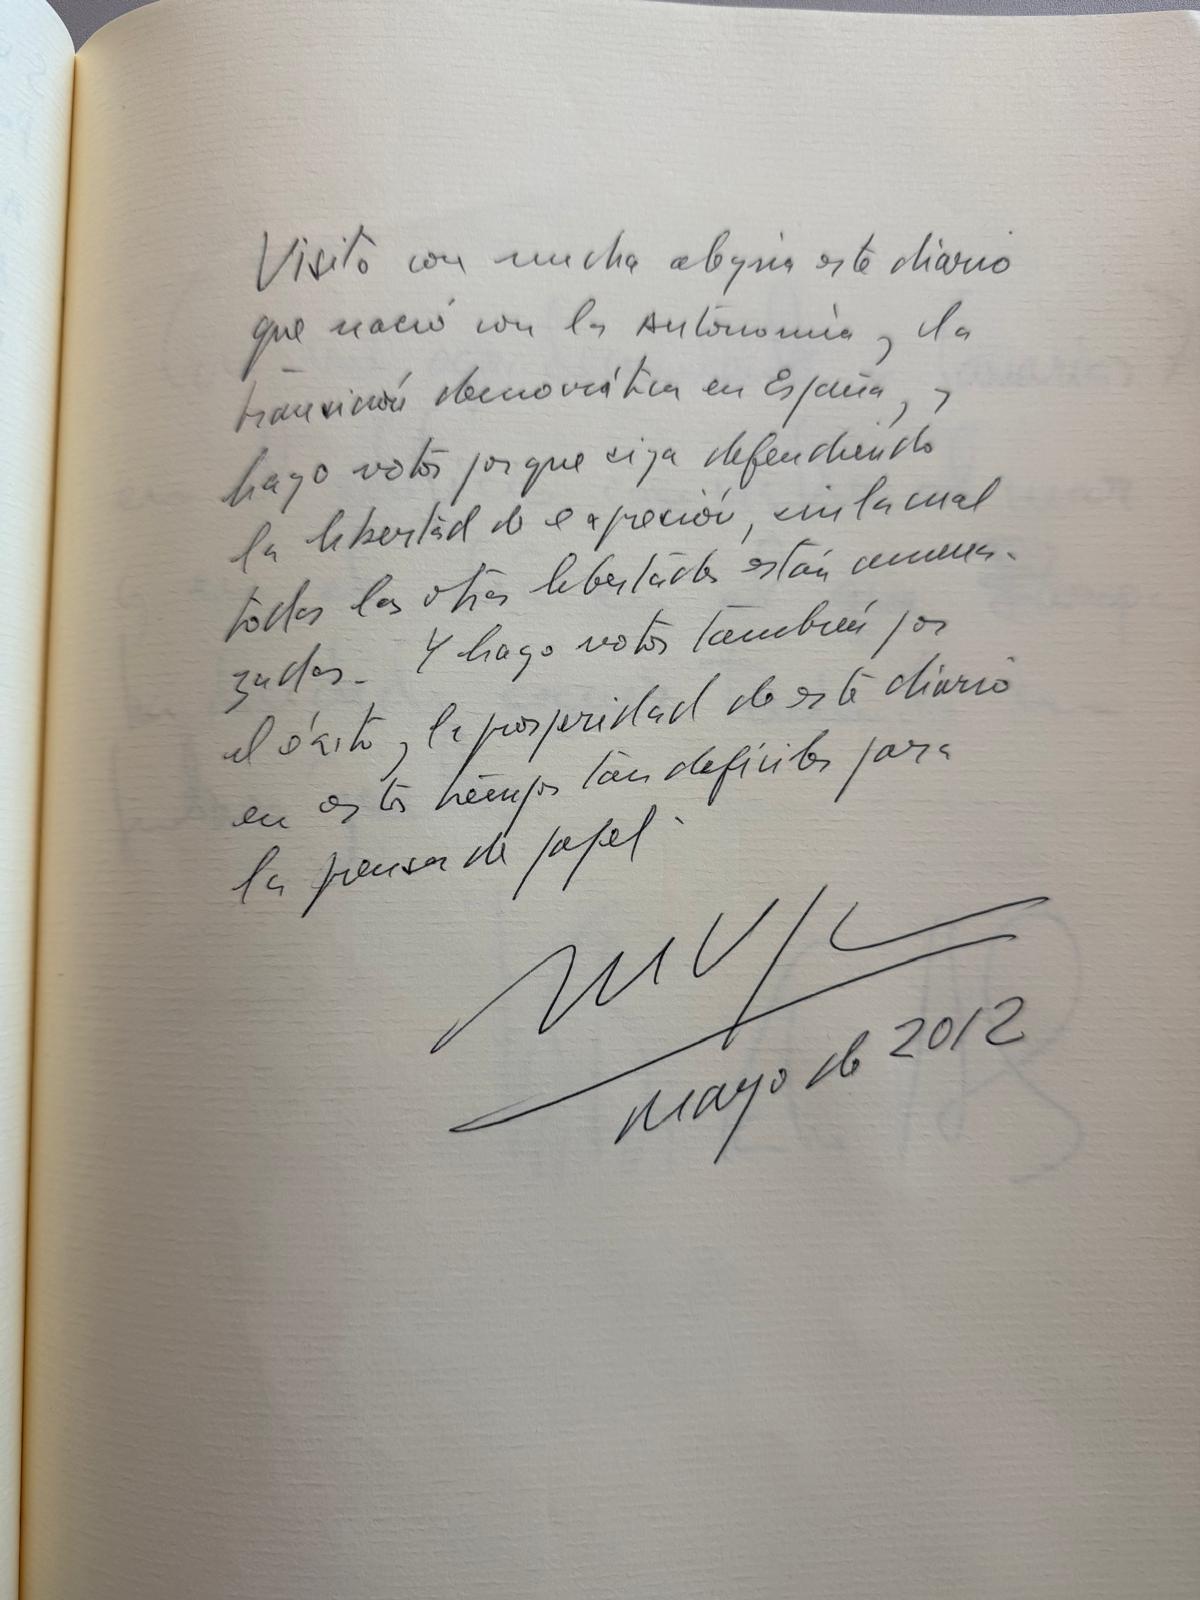 Visito con mucha alegría este diario
que nació con la Autonomía y la
transición democrática en España, y
hago votos porque siga defendiendo
la libertad de expresión, sin la cual
todas las otras libertades están amena-
zadas. Y hago votos también por
el éxito y la prosperidad de este diario
en estos tiempos tan difíciles para
la prensa de papel.
mayo de 2012